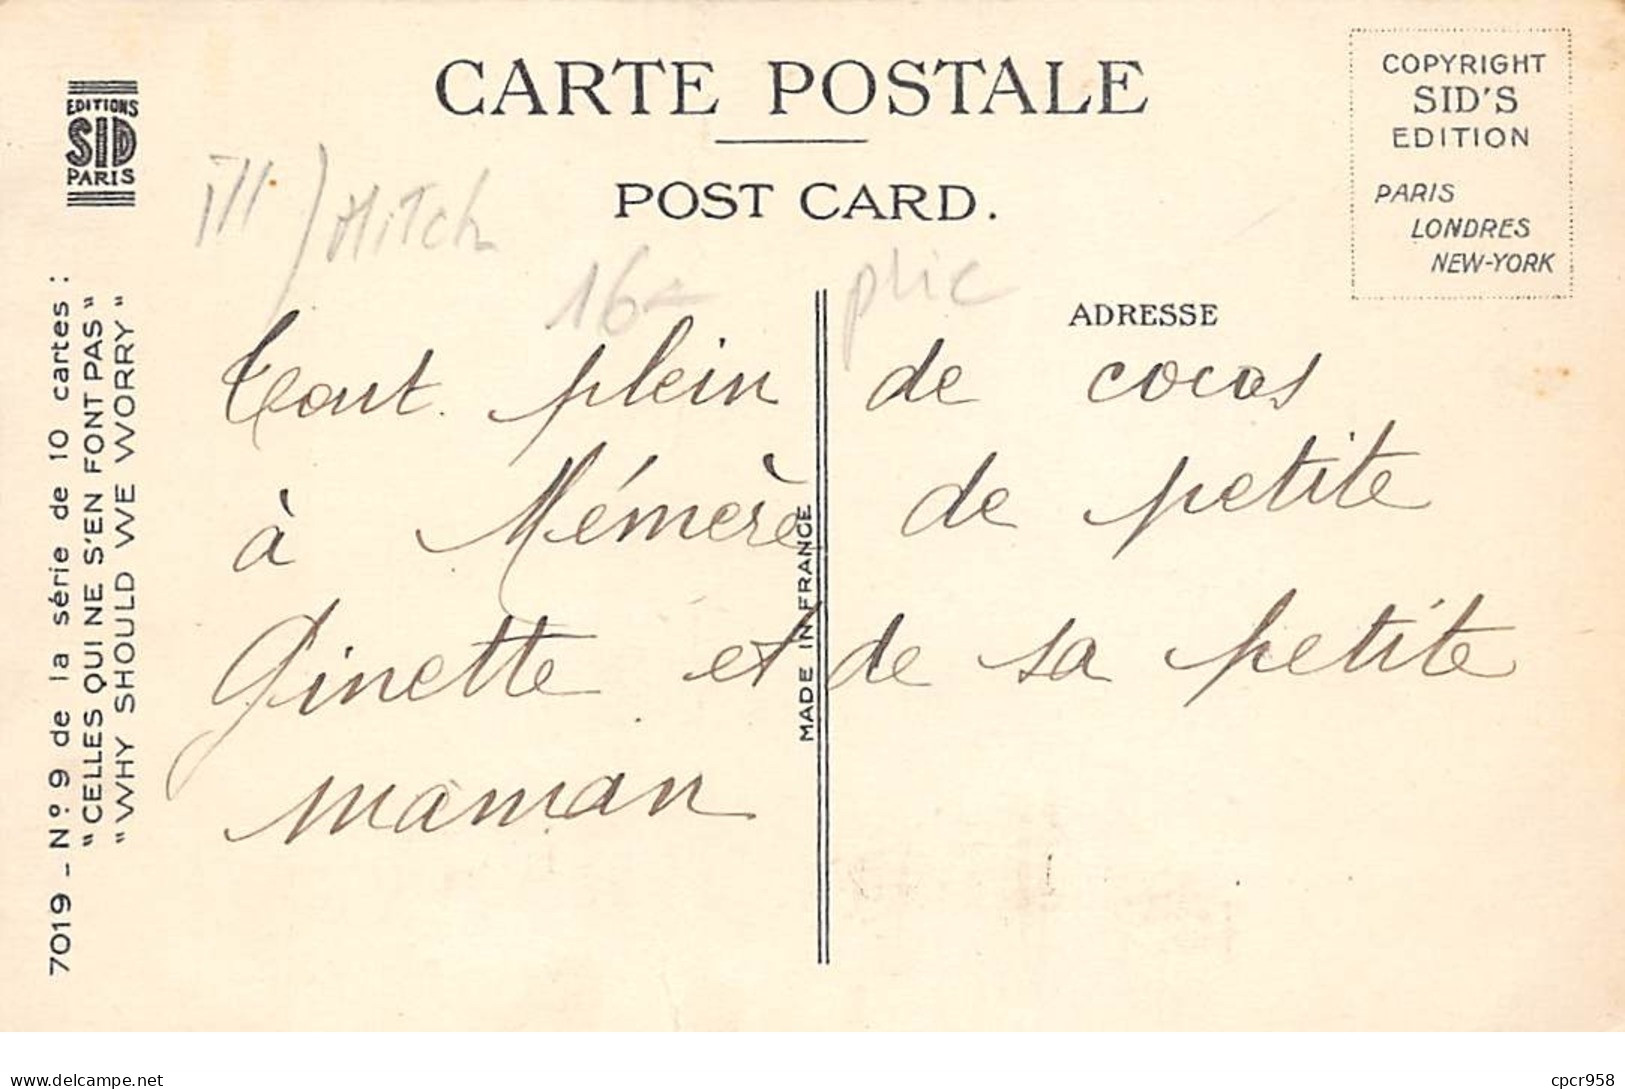 CARTE POSTALE
POST CARD.
EDITIONS
SID
PARIS
COPYRIGHT
SID'S
EDITION
PARIS
LONDRES
NEW-YORK
ill/Mitch
16-
plic
ADRESSE
7019 - Nº 9 de la série de 10 cartes :
"CELLES QUI NE S'EN FONT PAS"
"WHY SHOULD WE WORRY"
Tout plein de cocos
à Mémère de petite
Ginette et de sa petite
maman
MADE IN FRANCE
delcampe.net
cpcr958